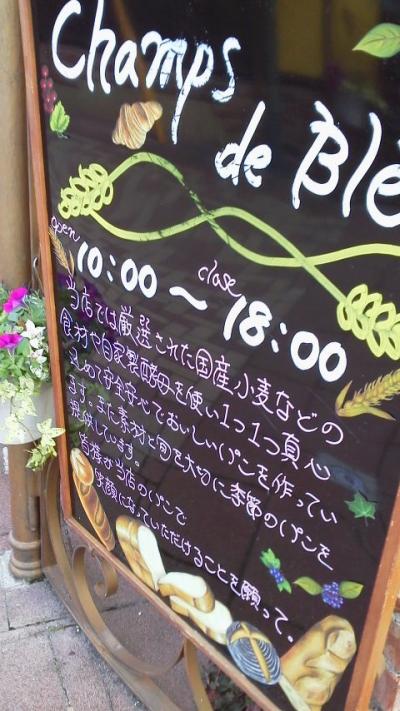 Champs
de Blé
open close
10:00 〜 18:00
当店では厳選された国産小麦などの
食材や自家製酵母を使い1つ1つ真心
込めて安全安心でおいしいパンを作ってい
ます。また素材と旬を大切に季節のパンを
提供しています。
皆様が当店のパンで
笑顔になっていただけることを願って。